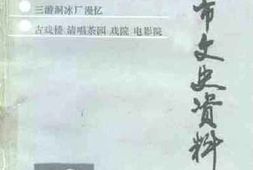 三游洞冰厂漫忆
古戏楼 清唱茶园 戏院 电影院
市文史资料